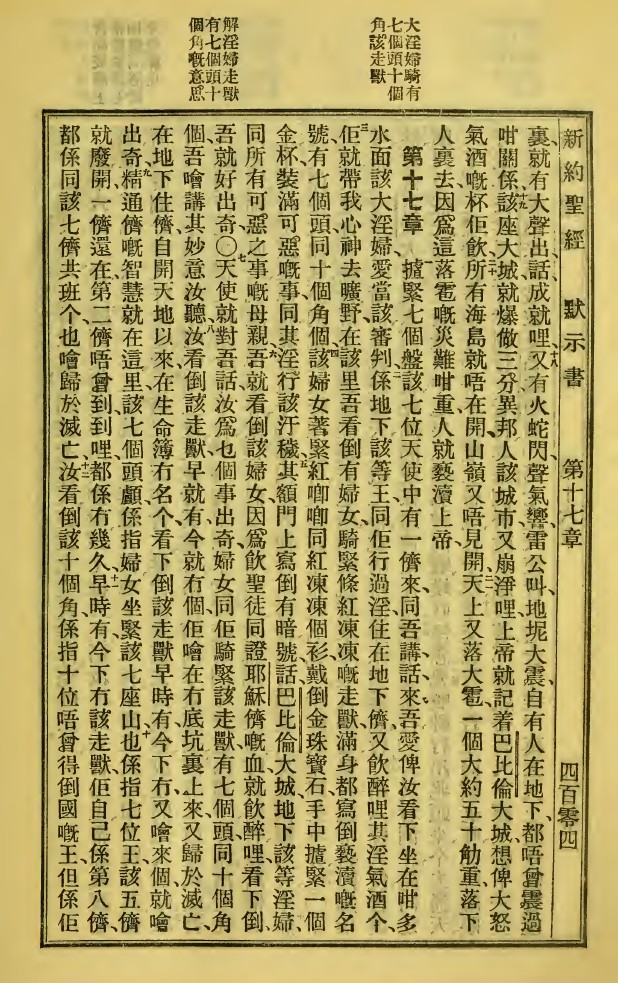 大淫婦騎有
七個頭十個
角該走獸
解淫婦走獸
有七個頭十
個角嘅意思
新約聖經 默示書 第十七章 四百零四
裏、就有大聲出話、成就哩、十八又有火蛇閃聲氣響雷公叫、地坭大震、自有人在地下、都唔曾震過
咁關係、十九該座大城就爆做三分、異邦人該城市又崩淨哩、上帝就記着巴比倫大城、想俾大怒
氣酒嘅杯佢飲、二十所有海島就唔在開、山嶺又唔見開、二一天上又落大雹、一個大約五十觔重、落下
人裏去、因爲這落雹嘅災難咁重、人就褻瀆上帝、
第十七章 一攎緊七個盤、該七位天使中有一儕來、同吾講話、來、吾愛俾汝看下坐在咁多
水面該大淫婦、愛當該審判、二係地下該等王、同佢行過淫、住在地下儕、又飲醉哩其淫氣酒个、
三佢就帶我心神去曠野、在該里吾看倒有婦女、騎緊條紅凍凍嘅走獸、滿身都寫倒褻瀆嘅名
號、有七個頭、同十個角、四該婦女著緊紅啣啣同紅凍凍個衫、戴倒金珠寶石、手中攎緊一個
金杯、裝滿可惡嘅事、同其淫行該汙穢、五其額門上寫倒有暗號話、巴比倫大城、地下該等淫婦、
同所有可惡之事嘅母親、六吾就看倒該婦女、因爲飲聖徒同證耶穌儕嘅血、就飲醉哩、看下倒、
吾就好出奇○七天使就對吾話、汝爲乜個事出奇、婦女同佢騎緊該走獸、有七個頭、同十個角
個、吾噲講其妙意汝聽、八汝看倒該走獸、早就有、今就冇個、佢噲在冇底坑裏上來、又歸於滅亡、
在地下住儕、自開天地以來、在生命簿冇名个、看下倒該走獸、早時有、今下冇、又噲來個、就噲
出奇、九精通儕嘅智慧就在這里、該七個頭顱、係指婦女坐緊該七座山、十也係指七位王、該五儕
就廢開、一儕還在、第二儕唔曾到、到哩都係冇幾久、十一早時有、今下冇該走獸、佢自己係第八儕、
都係同該七儕共班个、也噲歸於滅亡、十二汝看倒該十個角、係指十位唔曾得倒國嘅王、但係佢